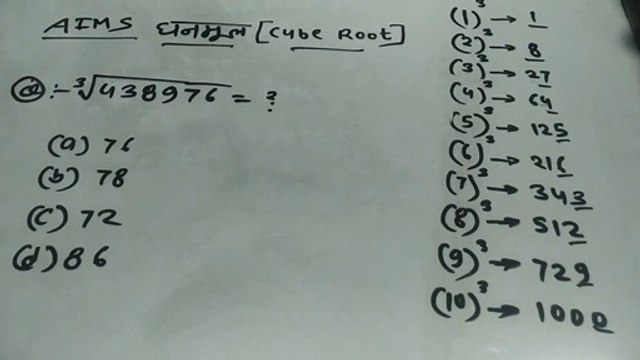 AIMS घनमूल [Cube Root]
Q:- ³√438976 = ?
(a) 76
(b) 78
(c) 72
(d) 86
(1)³ → 1
(2)³ → 8
(3)³ → 27
(4)³ → 64
(5)³ → 125
(6)³ → 216
(7)³ → 343
(8)³ → 512
(9)³ → 729
(10)³ → 1000